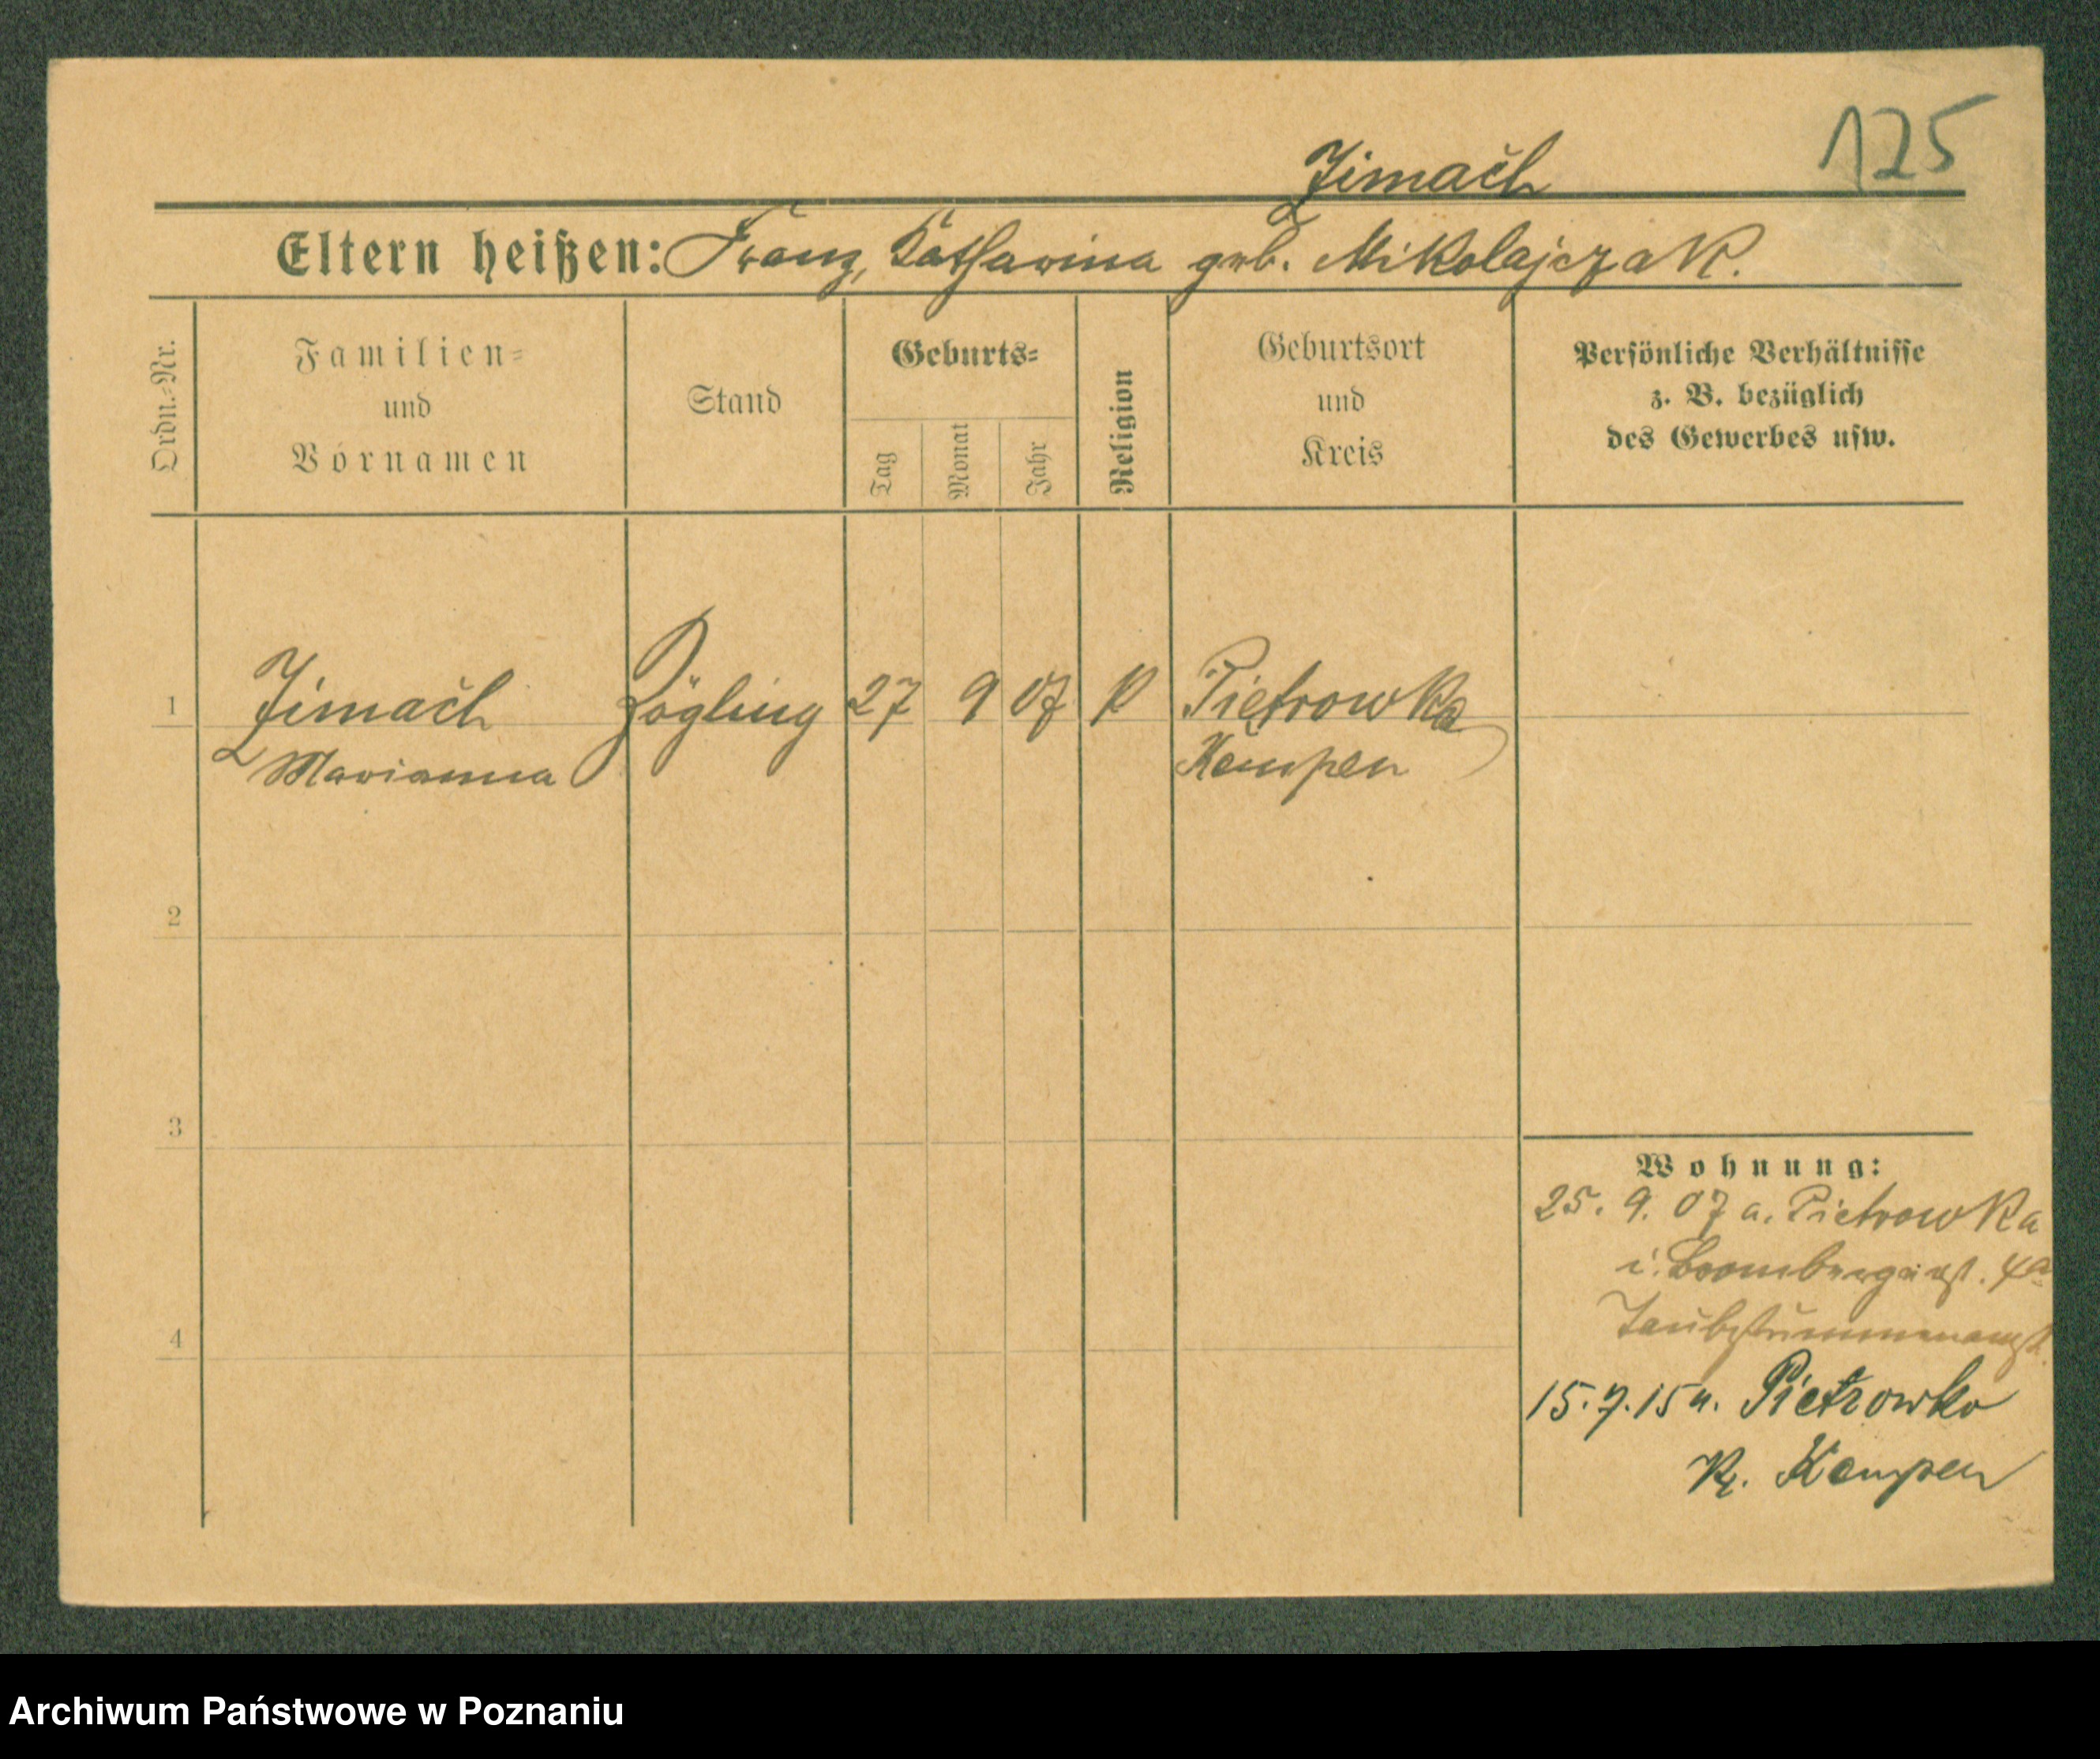 125
Zimach
Eltern heißen: Franz, Katharina geb. Mikolajczak.
Ordn.-Nr.
Familien-
und
Vornamen
Stand
Geburts-
Tag
Monat
Jahr
Religion
Geburtsort
und
Kreis
Persönliche Verhältnisse
z. B. bezüglich
des Gewerbes usw.
1 Zimach Zögling 27 9 07 K Pietrowka
Marianna Kempen
2
3
4
Wohnung:
25. 9. 07 a. Pietrowka
i. Brombergerst. 4a
Taubstummenanst.
15.7.15 n. Pietrowka
Kr. Kempen
Archiwum Państwowe w Poznaniu